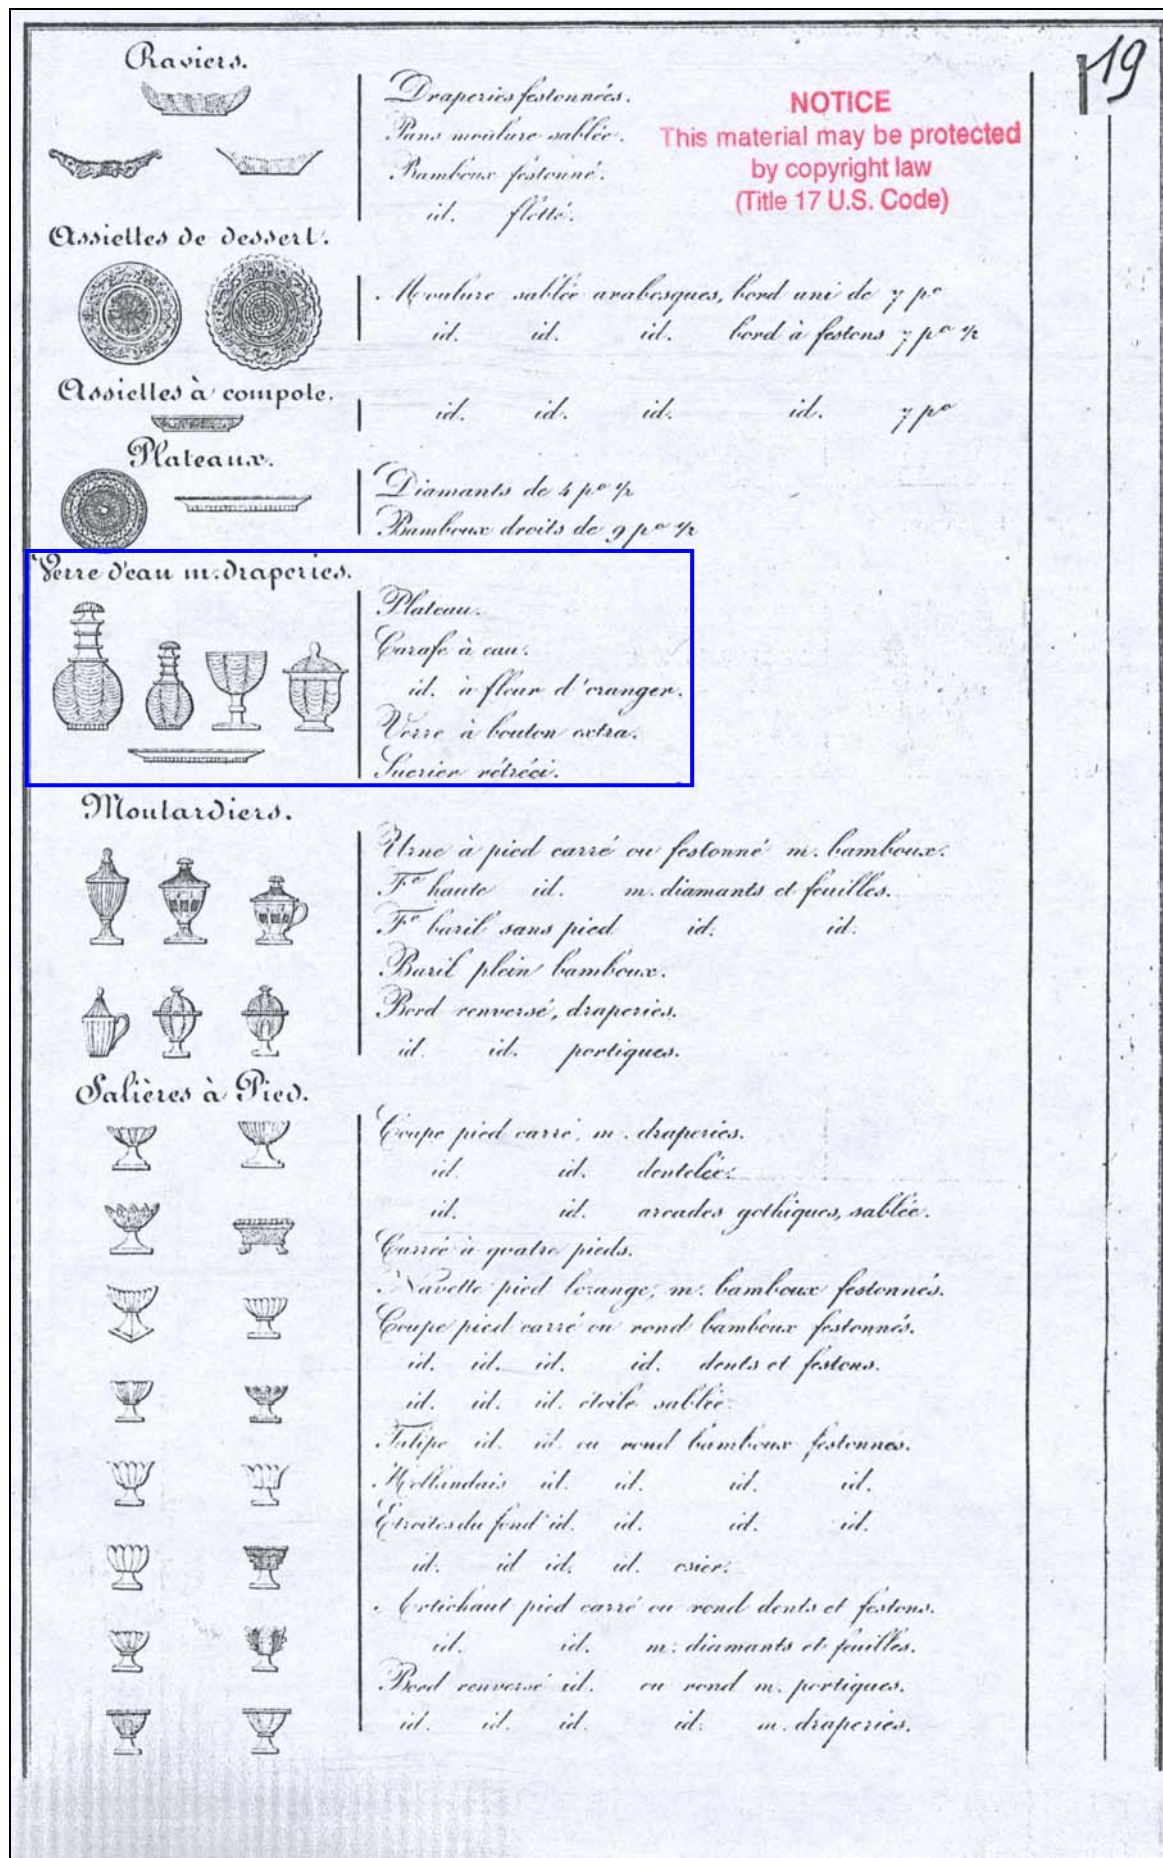 19
NOTICE
This material may be protected
by copyright law
(Title 17 U.S. Code)
Raviers.
Draperies festonnées.
Pans moulure sablée.
Bamboux festonné.
id. flotté.
Assiettes de dessert.
Moulure sablée arabesques, bord uni de 7 po
id. id. id. bord à festons 7 po 1/2
Assiettes à compote.
id. id. id. id. 7 po
Plateaux.
Diamants de 4 po 1/2
Bamboux droits de 9 po 1/2
Verre d'eau m. draperies.
Plateau.
Carafe à eau.
id. à fleur d'oranger.
Verre à bouton extra.
Sucrier rétréci.
Moutardiers.
Urne à pied carré ou festonné m. bamboux.
Fe haute id. m. diamants et feuilles.
Fe baril sans pied id. id.
Baril plein bamboux.
Bord renversé, draperies.
id. id. portiques.
Salières à Pied.
Coupe pied carré, m. draperies.
id. id. dentelée.
id. id. arcades gothiques, sablée.
Carrée à quatre pieds.
Navette pied lozange, m. bamboux festonnés.
Coupe pied carré ou rond bamboux festonnés.
id. id. id. id. dents et festons.
id. id. id. étoile sablée.
Tulipe id. id. ou rond bamboux festonnés.
Hollandais id. id. id. id.
Etroites du fond id. id. id. id.
id. id id. id. osier.
Artichaut pied carré ou rond dents et festons.
id. id. m. diamants et feuilles.
Bord renversé id. ou rond m. portiques.
id. id. id. id. m. draperies.